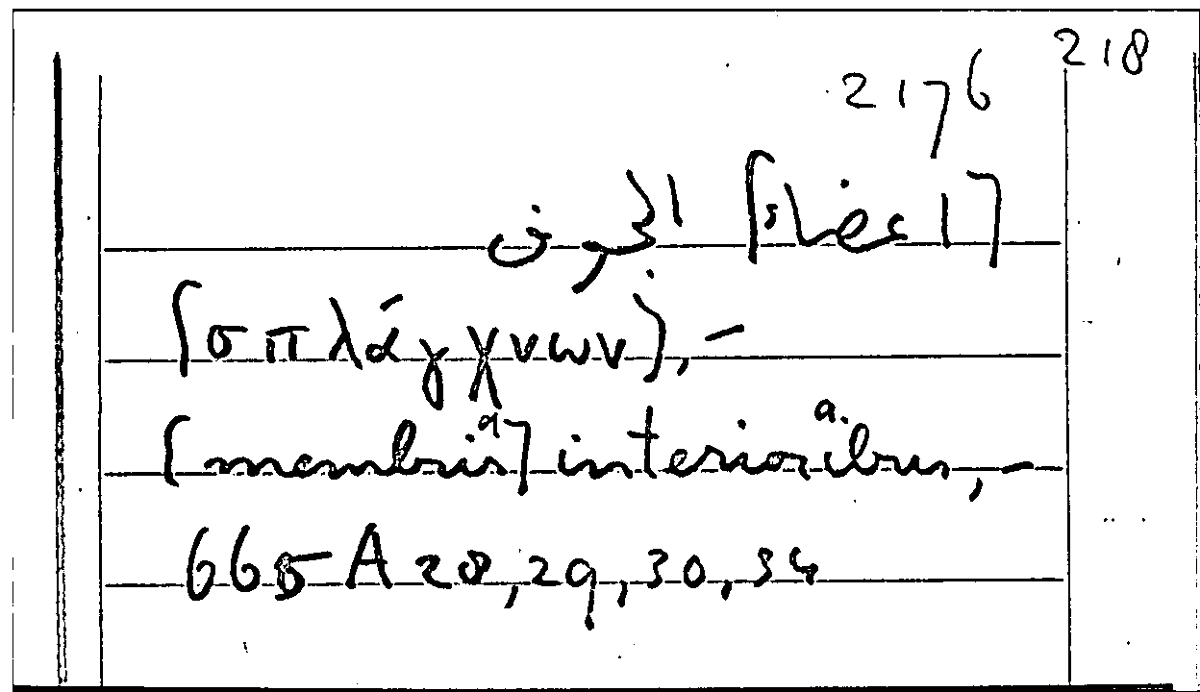 218
2176
الجوف
[σπλάγχνων], –
[membris] interioribus, –
665 A 28, 29, 30, 34